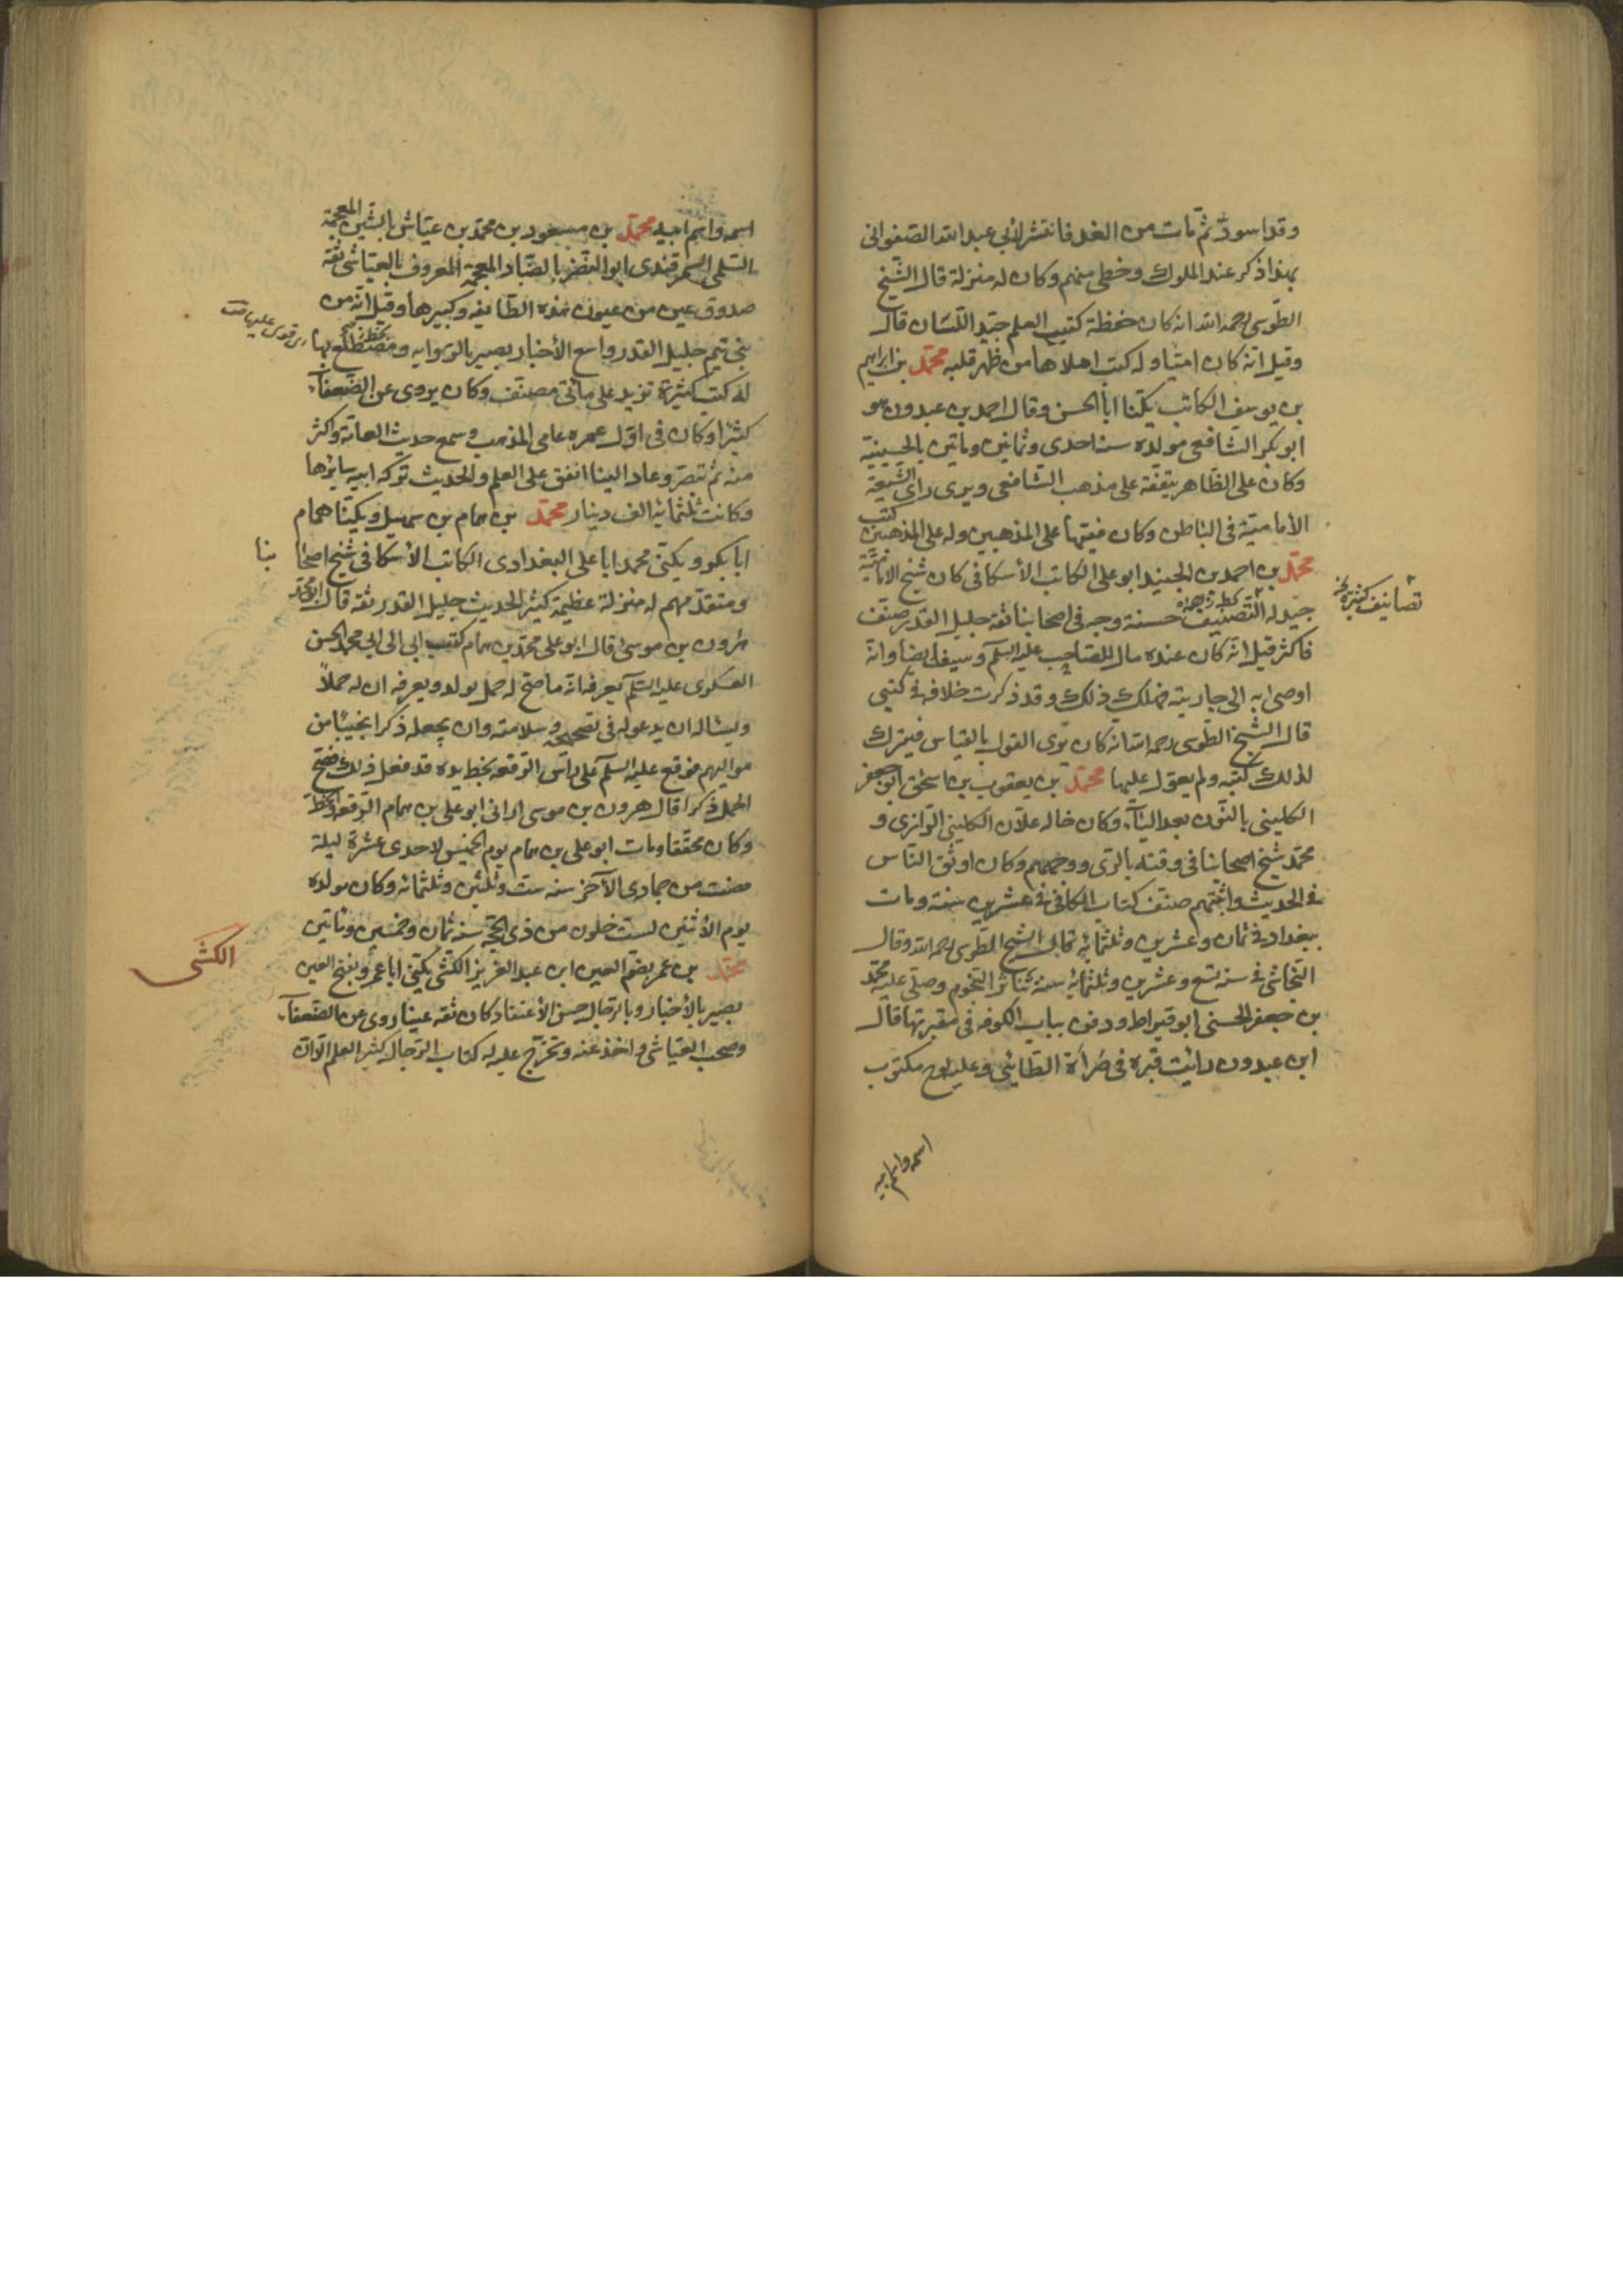 وقد اسودّ ثمّ مات من الغد فانتشر لأبي عبد الله الصّفواني
بهذا ذكر عند الملوك وخطى منهم وكان له منزلة قال الشّيخ
الطّوسى رحمه الله انه كان حفظة كتب العلم جيّد اللّسان قال
وقيل انه كان امّيّا وله كتب املاها من ظهر قلبه محمّد بن ابراهيم
بن يوسف الكاتب يكنّا ابا الحسن وقال احمد بن عبدون هو
ابو بكر الشافعى مولده سنة احدى وثمانين ومأتين بالحسينية
وكان على الظّاهر يتفقّه على مذهب الشّافعى ويرى راى الشّيعة
الأماميّة فى الباطن وكان فقيها على المذهبين وله على المذهبين كتب
محمّد بن احمد بن الجنيد ابو على الكاتب الأسكافى كان شيخ الاماميّة
جيّد له التّصنيف حسنة وجه فى اصحابنا ثقة جليل القدر صنّف
تصانيف كثيرة
فاكثر قيل انه كان عنده مال للصّاحب عليه السلم وسيف ايضا وانه
اوصى به الى جاريته فهلك ذلك وقد ذكرت خلافه فى كتبى
قال الشّيخ الطّوسى رحمه الله انه كان يرى القول بالقياس فيترك
لذلك كتبه ولم يعوّل عليها محمّد بن يعقوب بن اسحق ابو جعفر
الكلينى بالنّون بعد اليآء وكان خاله علاّن الكلينى الرازى و
محمّد شيخ اصحابنا فى وقته بالرّى ووجههم وكان اوثق النّاس
فى الحديث واثبتهم صنّف كتاب الكافى فى عشرين سنة ومات
ببغداد فى ثمان وعشرين وثلثمائة قال الشّيخ الطّوسى رحمه الله وقال
النّجاشى فى سنة تسع وعشرين وثلثمائة سنة تناثر النّجوم وصلّى عليه محمّد
بن جعفر الحسنى ابو قيراط ودفن بباب الكوفه فى مقبرتها قال
ابن عبدون رأيت قبره فى صَرَاة الطّائى وعليه لوح مكتوب
اسمه واسم ابيه
اسمه واسم ابيه محمّد بن مسعود بن محمّد بن عيّاش بالشّين المعجمة
السّلمى السّمرقندى ابو النّضر بالضّاد المعجمة المعروف بالعيّاشى ثقة
صدوق عين من عيون هذه الطّايفه وكبيرها وقيل انه من
بنى تميم جليل القدر واسع الأخبار بصير بالرّوايه ومضطلع بها
له كتب كثيرة تزيد على مأتى مصنّف وكان يروى عن الضّعفآء
كثيرًا وكان فى اوّل عمره عامى المذهب وسمع حديث العامّة واكثر
منه ثم تبصّر وعاد الينا انفق على العلم والحديث تركة ابيه سايرها
وكانت ثلثمائة الف دينار محمّد بن همام بن سهيل ويكنّا همام
ابا بكر ويكنّى محمد ابا على البغدادى الكاتب الأسكافى شيخ اصحا بنا
ومتقدّمهم له منزلة عظيمة كثير الحديث جليل القدر ثقة قال ابو محمّد
هرون بن موسى قال ابو على محمّد بن همام كتب ابى الى ابى محمد الحسن
العسكرى عليه السّلم يعرفه انه ما صحّ له حمل بولد ويعرفه ان له حملاً
ويسأله ان يدعو له فى تصحيحه وسلامته وان يجعله ذكرا نجيبًا من
مواليهم فوقع عليه السلم على رأس الرّقعه بخط يده قد فعل ذلك فصحّ
الحمل ذكرا قال هرون بن موسى ارانى ابو على بن همام الرّقعه والخطّ
وكان محقّقا ومات ابو على بن همام يوم الخميس لاحدى عشرة ليلة
مضت من جمادى الآخر سنه ست وثلثين وثلثمائه وكان مولده
يوم الأثنين لست خلون من ذى الحجّة سنه ثمان وخمسين ومأتين
محمّد بن عمر بضمّ العين ابن عبد العزيز الكشّى يكنّى ابا عمرو بفتح العين
الكشّى
بصير بالأخبار وبالرّجال حسن الأعتقاد كان ثقه عينا روى عن الضّعفآء
وصحب العيّاشى واخذ عنه وتخرّج عليه له كتاب الرّجال كثير العلم الاّ انّ